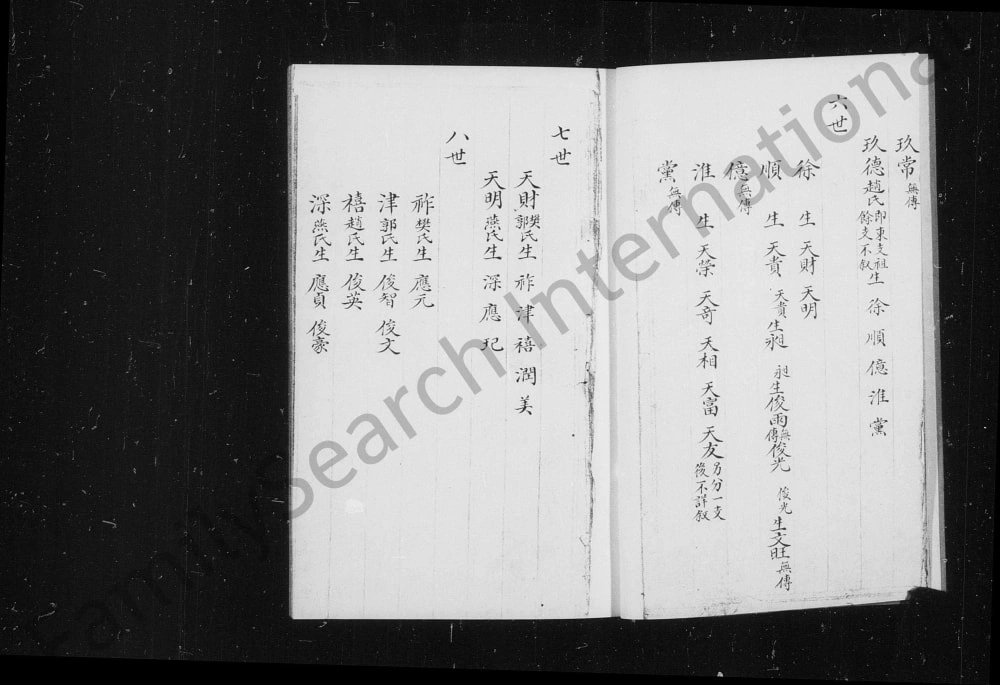 玖常無傳
玖德趙氏即東支祖餘支不敘生 徐 順 億 淮 黨
六世
徐 生 天財 天明
順 生 天貴 天貴生昶 昶生俊雨無傳俊光 俊光生文旺無傳
億無傳
淮 生 天榮 天奇 天相 天富 天友另分一支後不詳敘
黨無傳
七世
天財樊郭氏生 祚 津 禧 潤 美
天明燕氏生 深 應 玘
八世
祚樊氏生 應元
津郭氏生 俊智 俊文
禧趙氏生 俊英
深燕氏生 應貞 俊豪
FamilySearch International